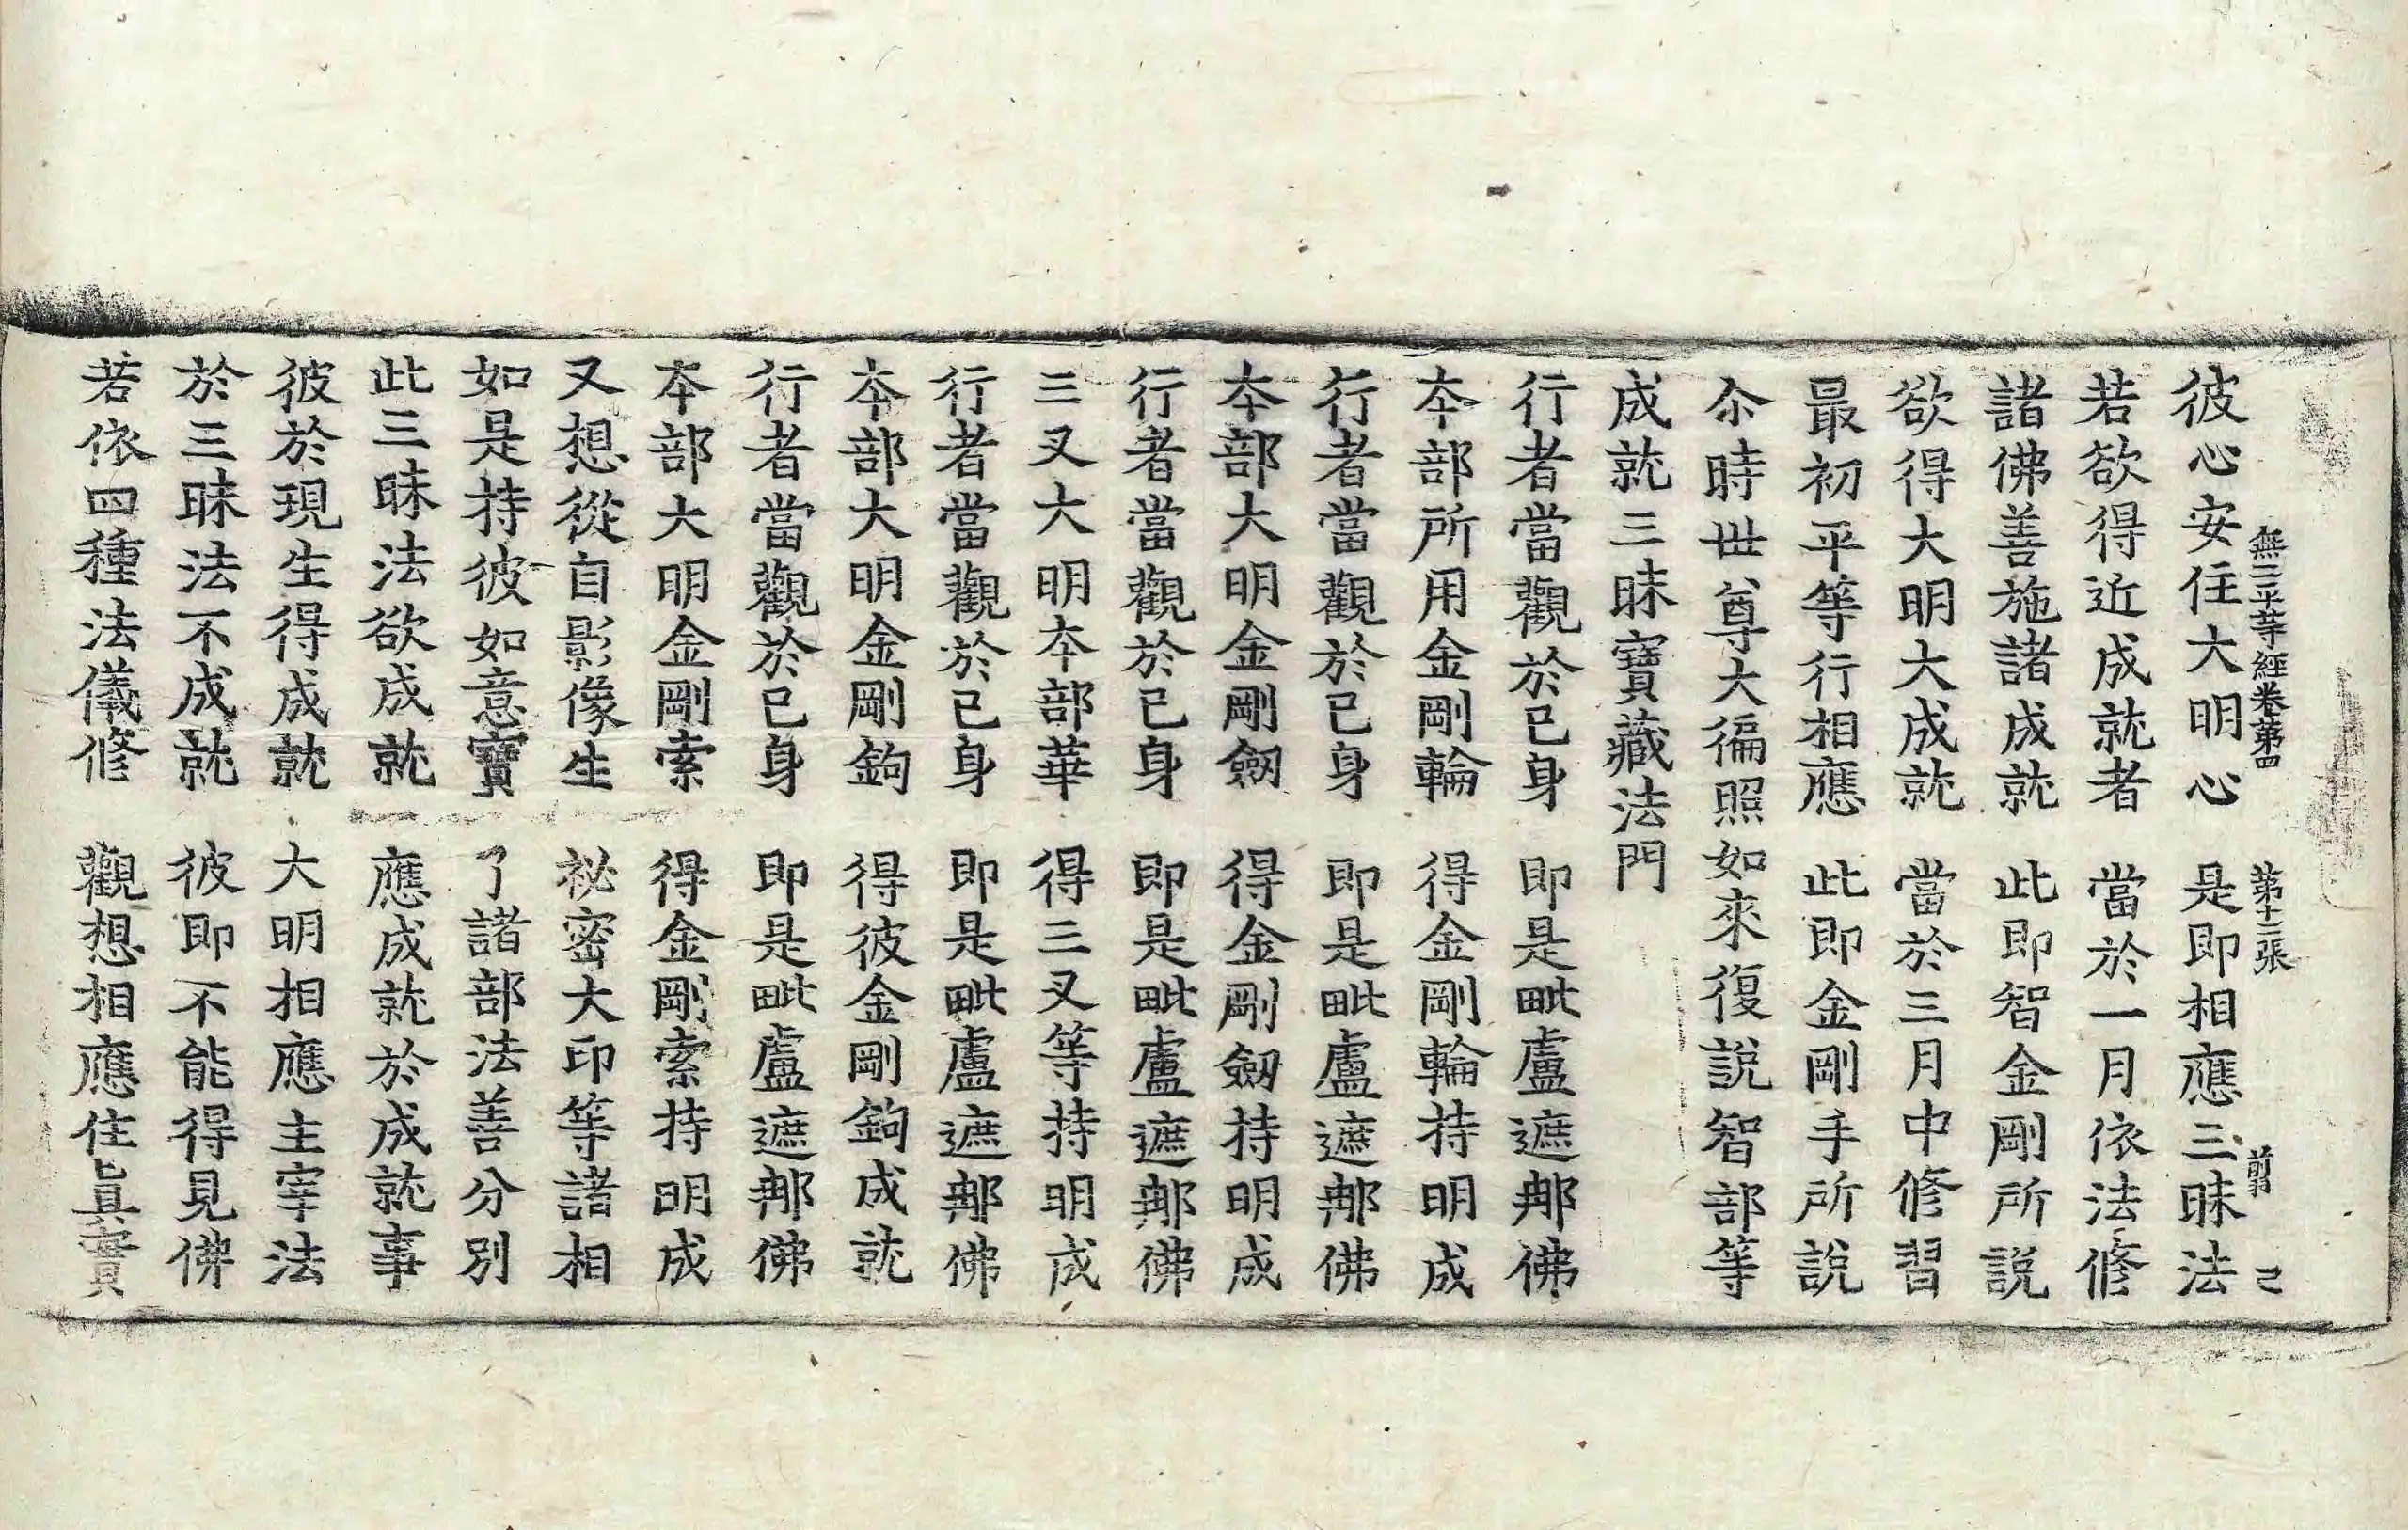 無二平等經卷第四　第十二張　前　已
彼心安住大明心　是即相應三昧法
若欲得近成就者　當於一月依法修
諸佛善施諸成就　此即智金剛所說
欲得大明大成就　當於三月中修習
最初平等行相應　此即金剛手所說
尒時世尊大徧照如來復說智部等
成就三昧寶藏法門
行者當觀於已身　即是毗盧遮那佛
本部所用金剛輪　得金剛輪持明成
行者當觀於已身　即是毗盧遮那佛
本部大明金剛劒　得金剛劒持明成
行者當觀於已身　即是毗盧遮那佛
三叉大明本部華　得三叉等持明成
行者當觀於已身　即是毗盧遮那佛
本部大明金剛鉤　得彼金剛鉤成就
行者當觀於已身　即是毗盧遮那佛
本部大明金剛索　得金剛索持明成
又想從自影像生　祕密大印等諸相
如是持彼如意寶　了諸部法善分別
此三昧法欲成就　應成就於成就事
彼於現生得成就　大明相應主宰法
於三昧法不成就　彼即不能得見佛
若依四種法儀修　觀想相應住眞實